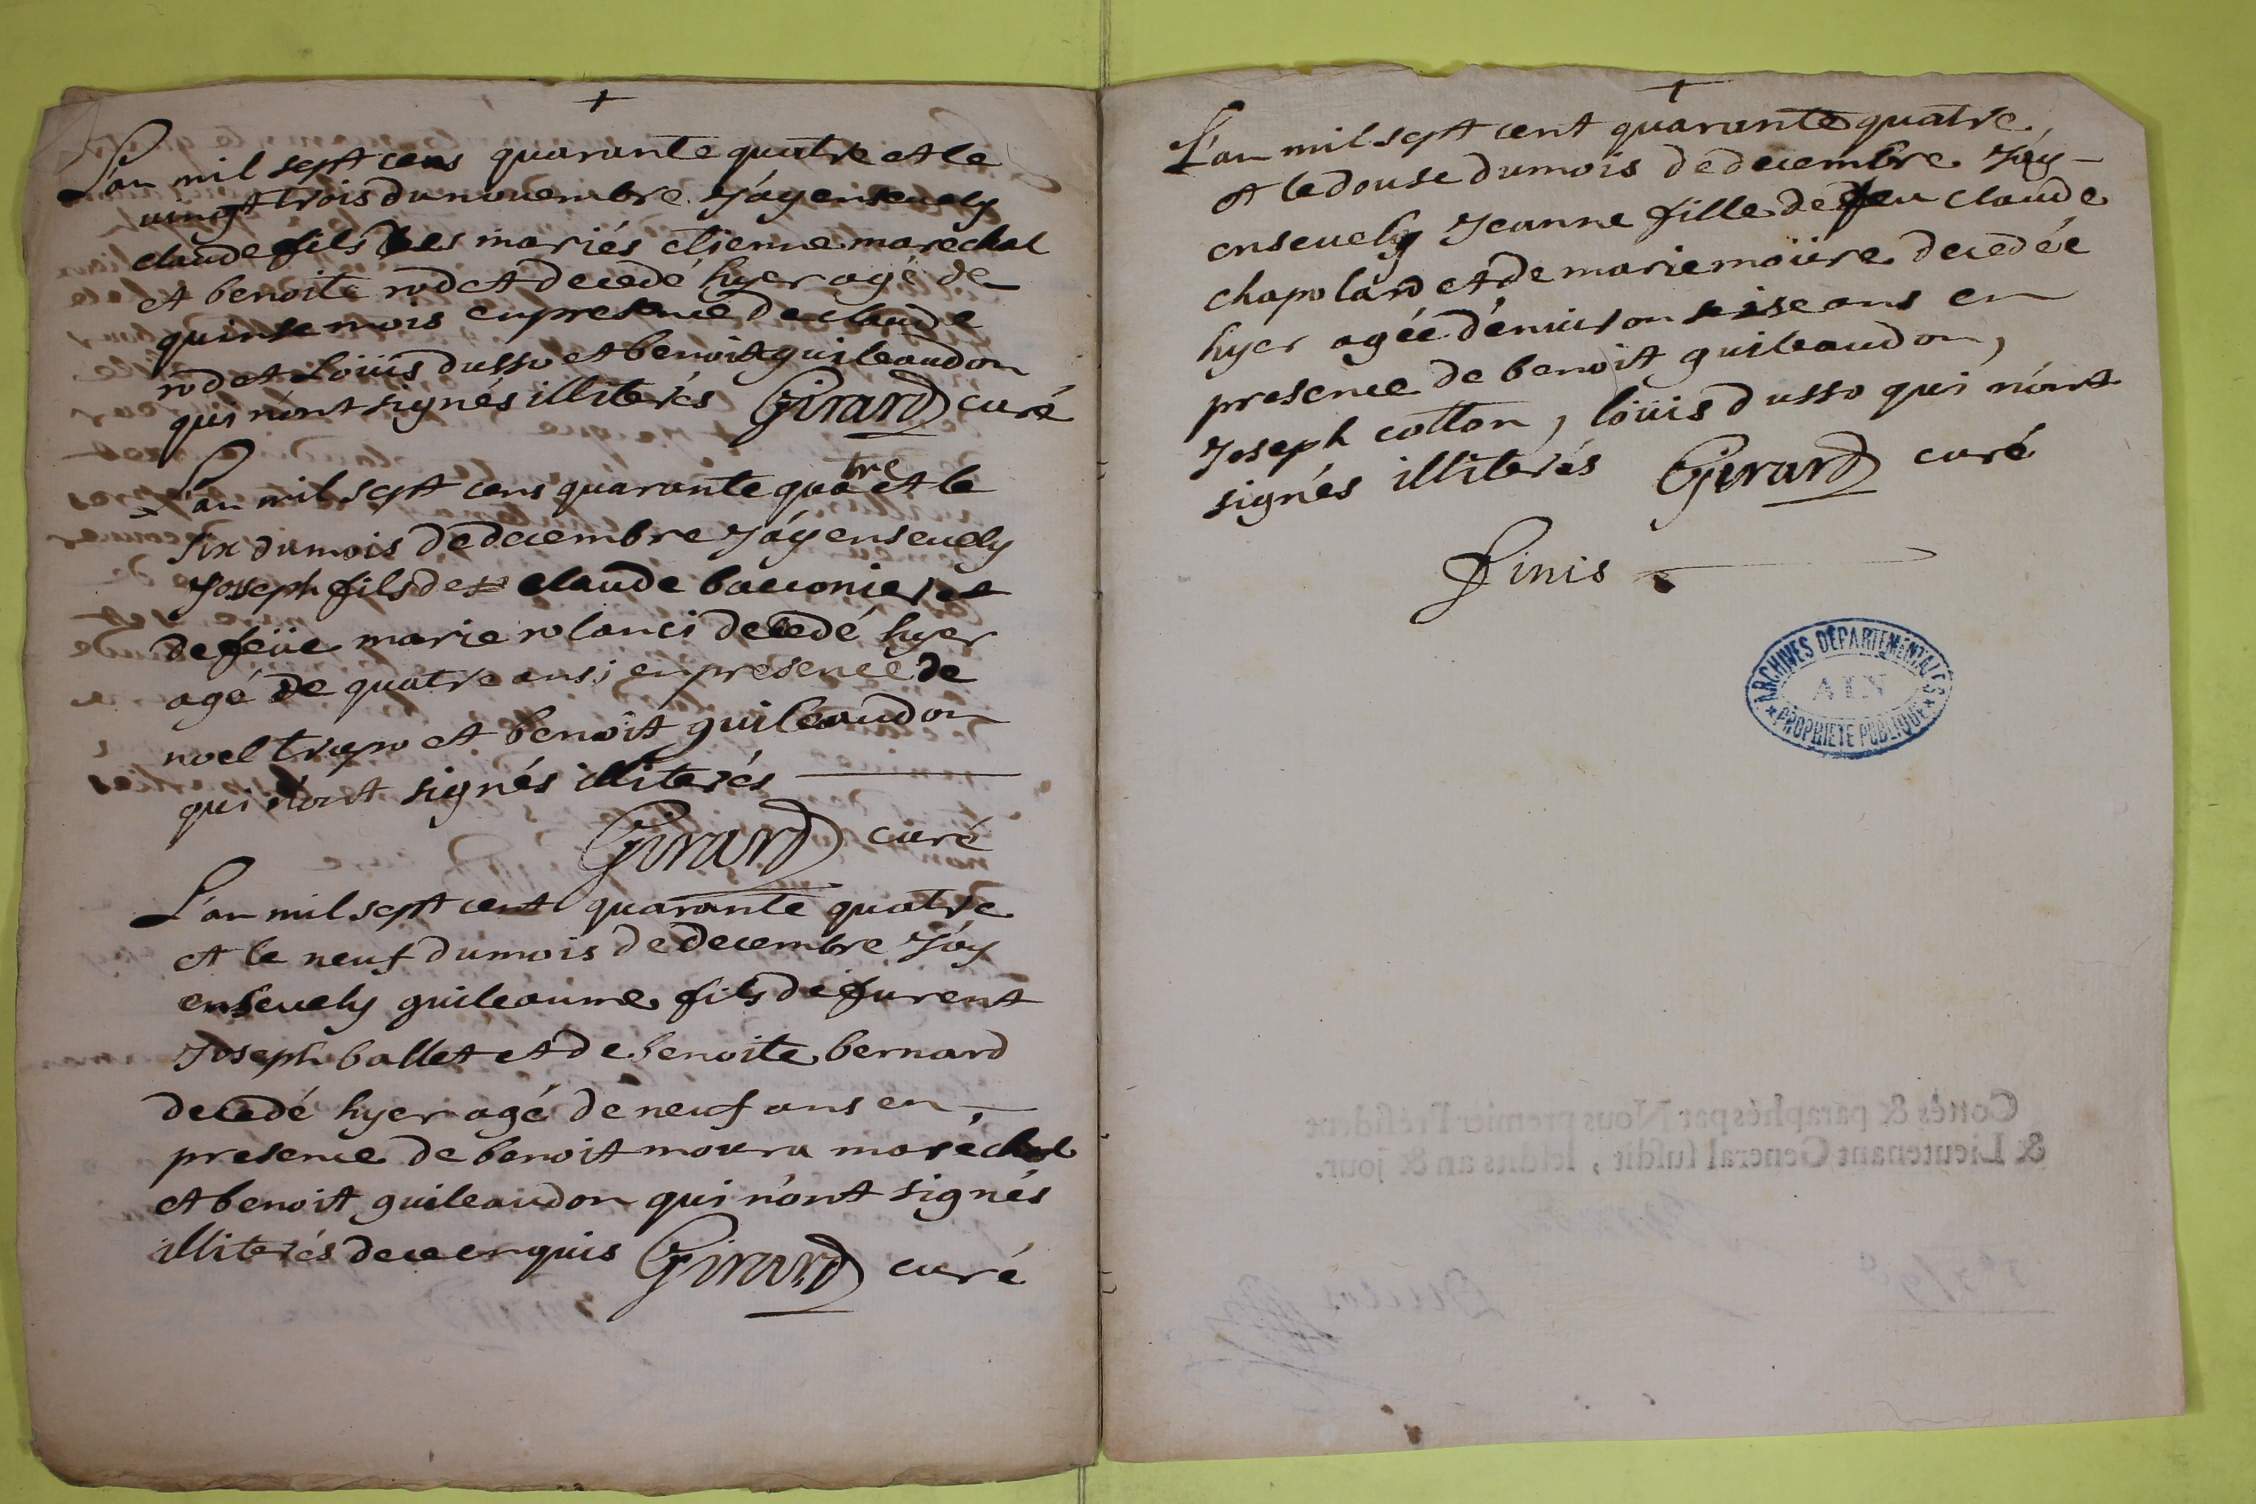 +
L'an mil sept cens quarante quatre et le
vingt trois du novembre J'ay ensevely
claude fils des mariés etienne marechal
et benoite rodet decedé hyer agé de
quinse mois en presence de claude
rodet Loüis dusso et benoit guileaudon
qui n'ont signés illiterés Girard curé
L'an mil sept cens quarante quatre et le
six du mois de decembre J'ay ensevely
Joseph fils de claude baconier et
de feüe marie rolanci decedé hyer
agé de quatre ans, en presence de
noel trapo et benoit guileaudon
qui n'ont signés illiterés
Girard curé
L'an mil sept cent quarante quatre
et le neuf du mois de decembre J'ay
ensevely guileaume fils de furent
Joseph ballet et de benoite bernard
decedé hyer agé de neuf ans en
presence de benoit moura maréchal
et benoit guileaudon qui n'ont signés
illiterés de ce enquis Girard curé
+
L'an mil sept cent quarante quatre
et le douse du mois de decembre J'ay
ensevely Jeanne fille de feu claude
chapolard et de marie moüre decedée
hyer agée d'environ seise ans en
presence de benoit guileaudon,
Joseph cotton, loüis dusso qui n'ont
signés illiterés Girard curé
Finis
ARCHIVES DÉPARTEMENTALES
AIN
PROPRIÉTÉ PUBLIQUE
Cottés & paraphés par Nous premier Président
& Lieutenant General susdit, lesdits an & jour.